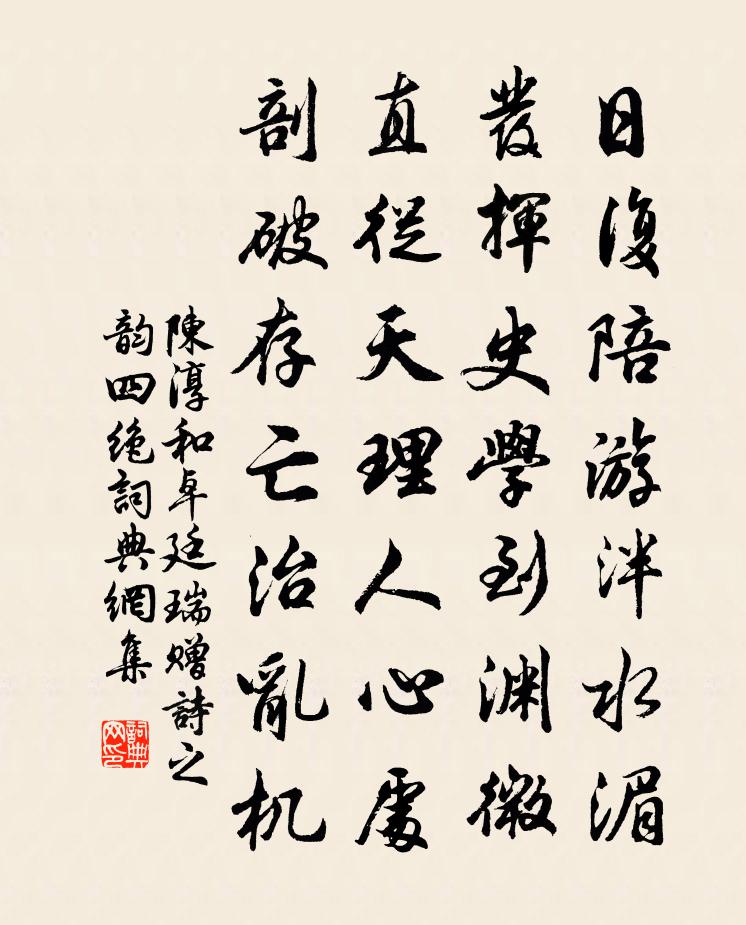 日復陪游泮水湄
發揮史學到渊微
直從天理人心處
剖破存亡治亂机
陳淳和卓廷瑞赠詩之
韵四絶詞典網集
詞典网印